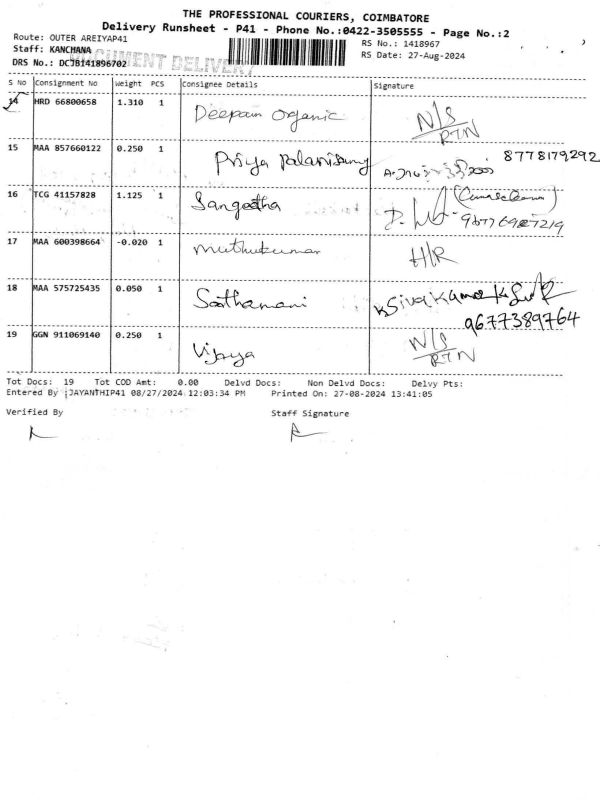 THE PROFESSIONAL COURIERS, COIMBATORE
Delivery Runsheet - P41 - Phone No.:0422-3505555 - Page No.:2
Route: OUTER AREIYAP41 RS No.: 1418967
Staff: KANCHANA RS Date: 27-Aug-2024
DOCUMENT DELIVERY
DRS No.: DCJB141896702
S No Consignment No Weight PCS Consignee Details Signature
14 HRD 66800658 1.310 1 Deepam Organic N/S
RTN
15 MAA 857660122 0.250 1 Priya Palanisamy 8778179292
16 TCG 41157828 1.125 1 Sangeetha
17 MAA 600398664 -0.020 1 muthukumar H/R
18 MAA 575725435 0.050 1 Sivakamo
9677389764
19 GGN 911069140 0.250 1 Vijaya N/S
RTN
Tot Docs: 19 Tot COD Amt: 0.00 Delvd Docs: Non Delvd Docs: Delvy Pts:
Entered By :JAYANTHIP41 08/27/2024 12:03:34 PM Printed On: 27-08-2024 13:41:05
Verified By Staff Signature